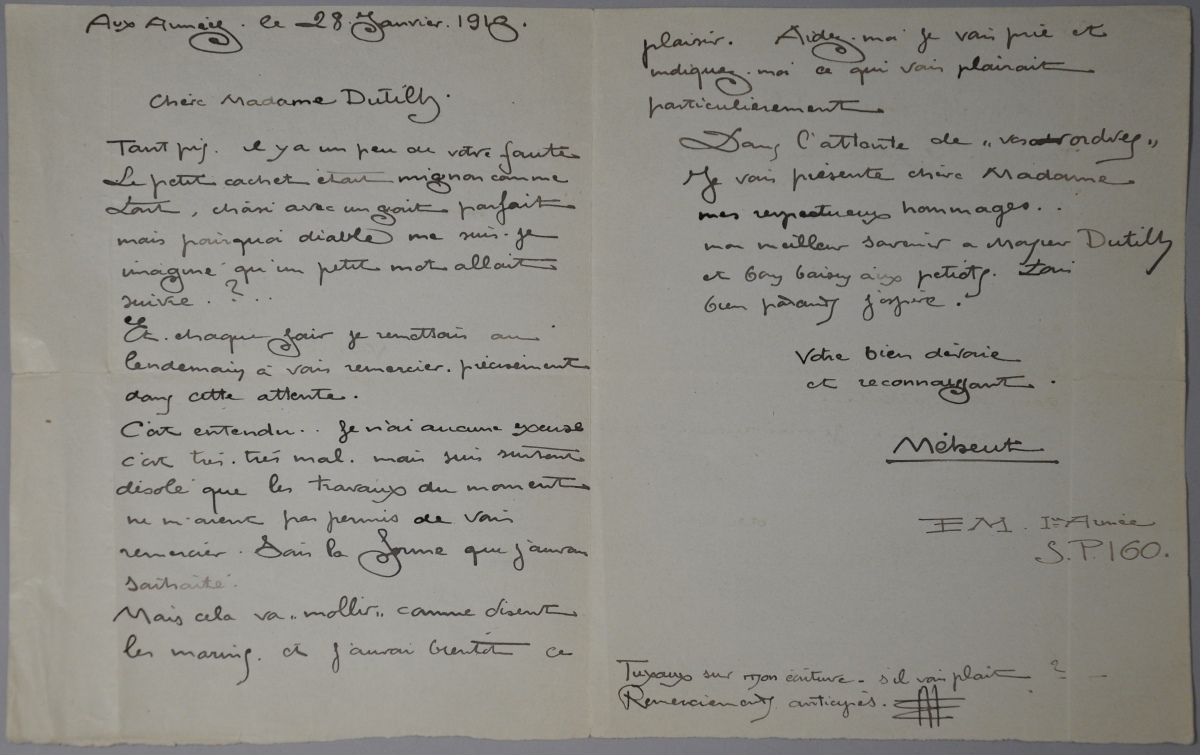 Aux Armées. le 28. Janvier. 1918.
Chère Madame Dutilly.
Tant pis. il y a un peu de votre faute
Le petit cachet était mignon comme
tout, choisi avec un goût parfait
mais pourquoi diable me suis-je
imaginé qu'un petit mot allait
suivre. ?...
Et. chaque soir je remettais au
lendemain à vous remercier. précisément
dans cette attente.
C'est entendu.. Je n'ai aucune excuse
c'est très. très mal. mais suis surtout
désolé que les travaux du moment
ne m'aient pas permis de vous
remercier. Sous la forme que j'aurais
souhaité.
Mais cela va "mollir" comme disent
les marins. et j'aurai bientôt ce
plaisir. Aidez-moi je vous prie et
indiquez-moi ce qui vous plairait
particulièrement
Dans l'attente de "vos ordres"
Je vous présente chère Madame
mes respectueux hommages..
mon meilleur souvenir a Monsieur Dutilly
et bons baisers aux petiots. Tous
bien portants j'espère.
Votre bien dévoué
et reconnaissant.
Méheut
EM. Ière Armée
S.P.160.
Tuyaux sur mon écriture. s'il vous plait ?
Remerciements anticipés.